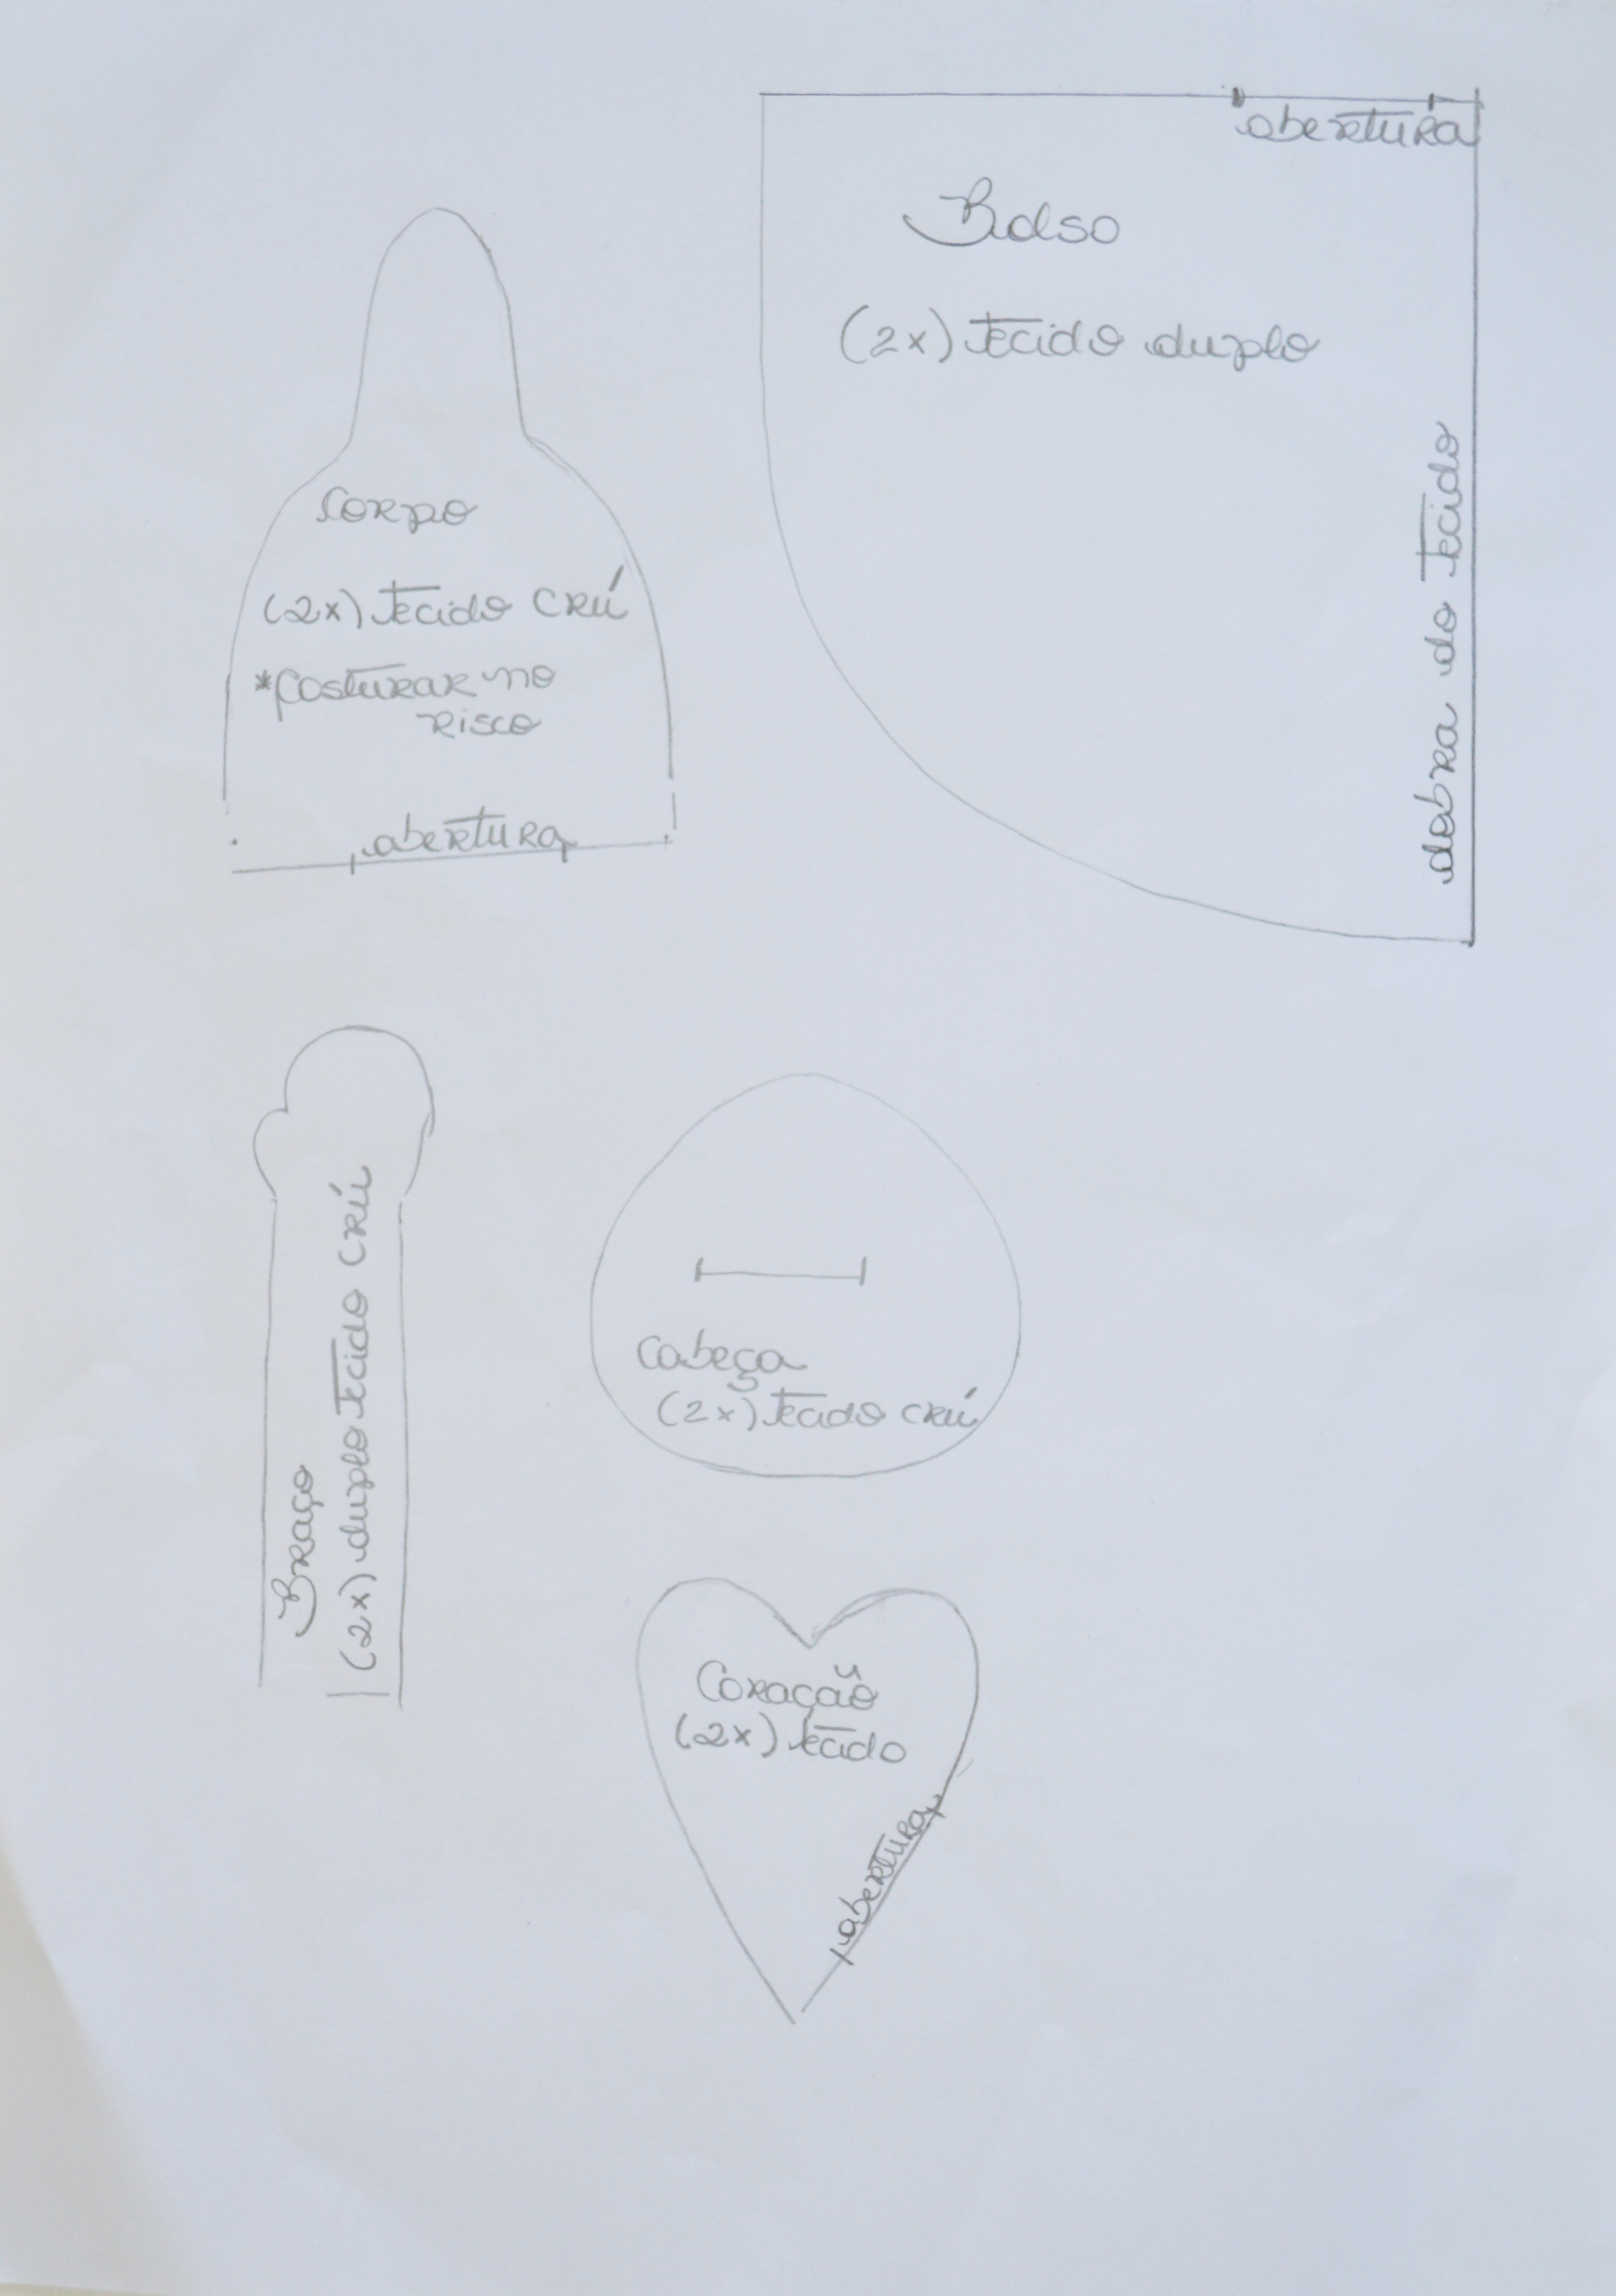 abertura
Bolso
(2x) tecido duplo
dobra do tecido
Corpo
(2x) tecido CRÚ
*Costurar no
risco
abertura
Braço
(2x) duplo tecido CRÚ
Cabeça
(2x) tecido CRÚ
Coração
(2x) tecido
abertura